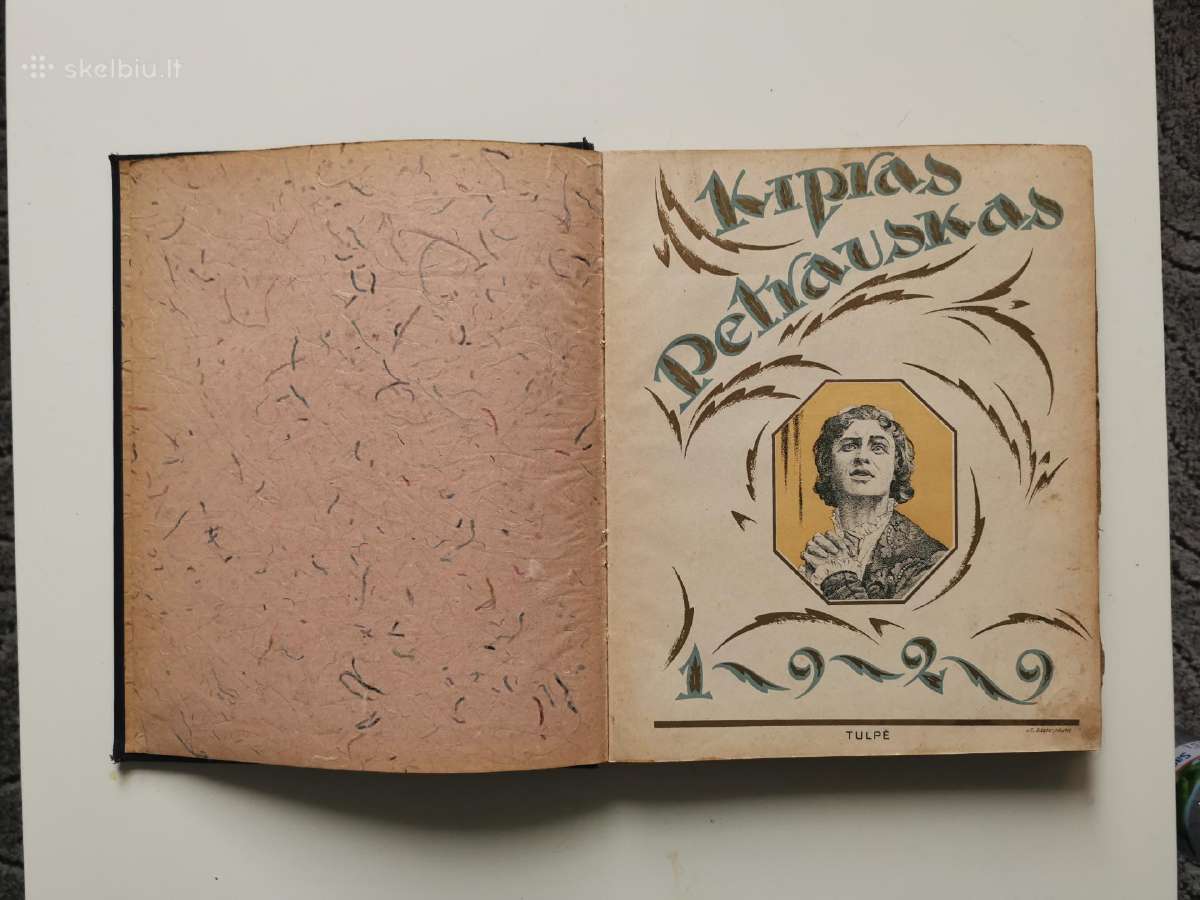 skelbiu.lt
Kipras
Petrauskas
1929
TULPĖ